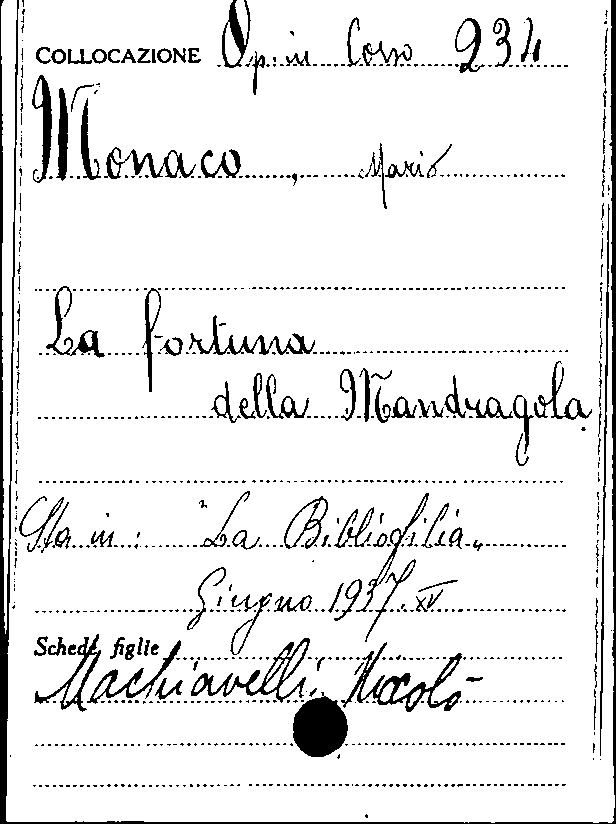 COLLOCAZIONE Op. in Corso 234
Monaco, Mario
La fortuna
della Mandragola
Sta in: "La Bibliofilia"
Giugno 1937. XV
Schede figlie
Machiavelli, Niccolò